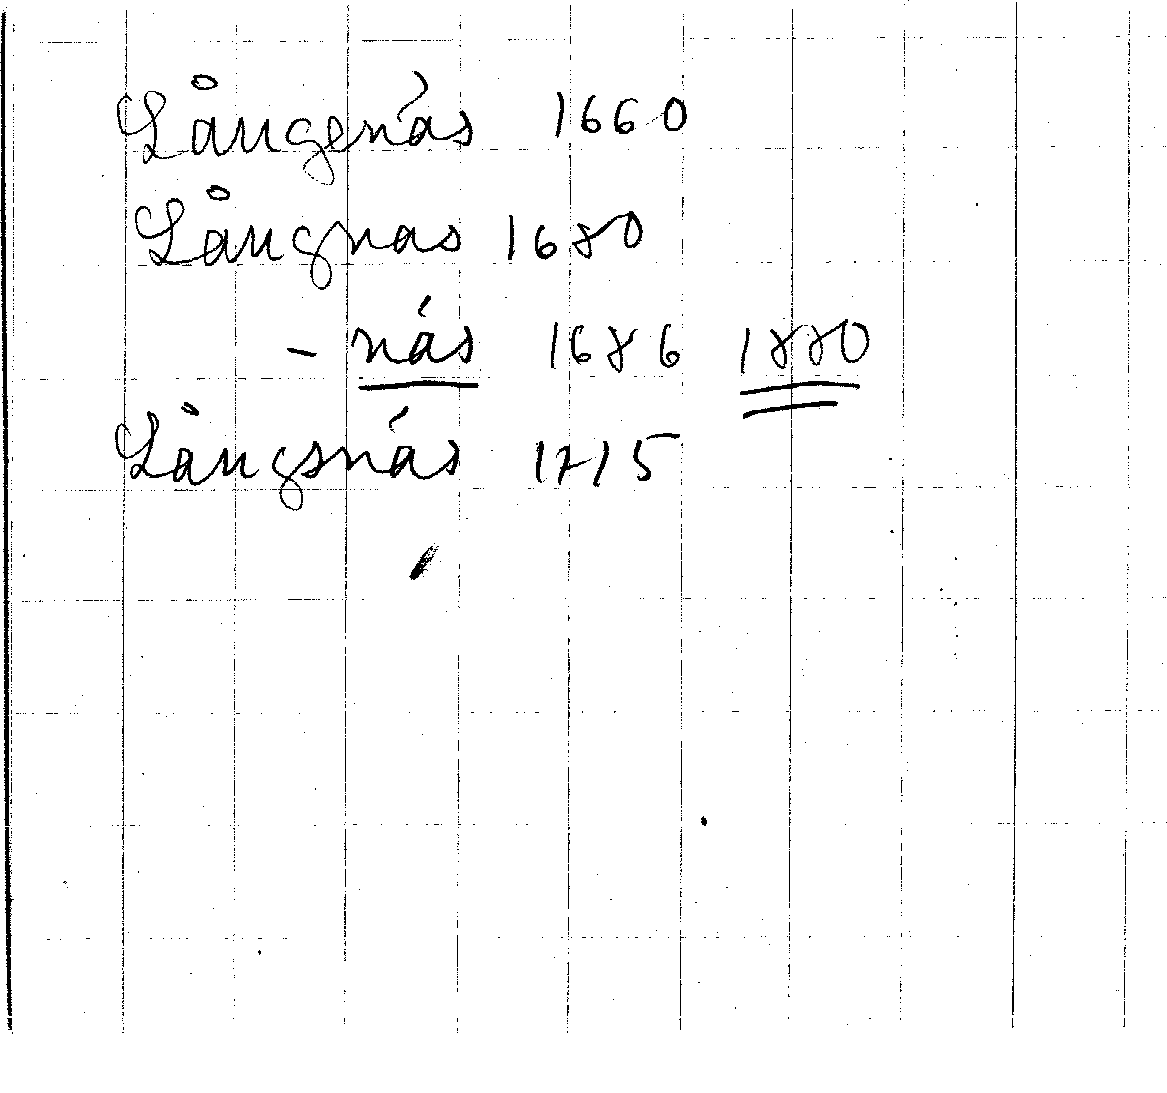 Långenás 1660
Långnas 1680
- nás 1686 1880
Långsnás 1715